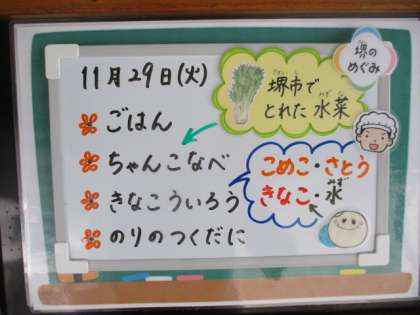 11月29日(火)
堺の
めぐみ
堺市で
さかいし
とれた 水菜
みずな
ごはん
ちゃんこなべ
きなこういろう
のりのつくだに
こめこ・さとう
きなこ・水
みず